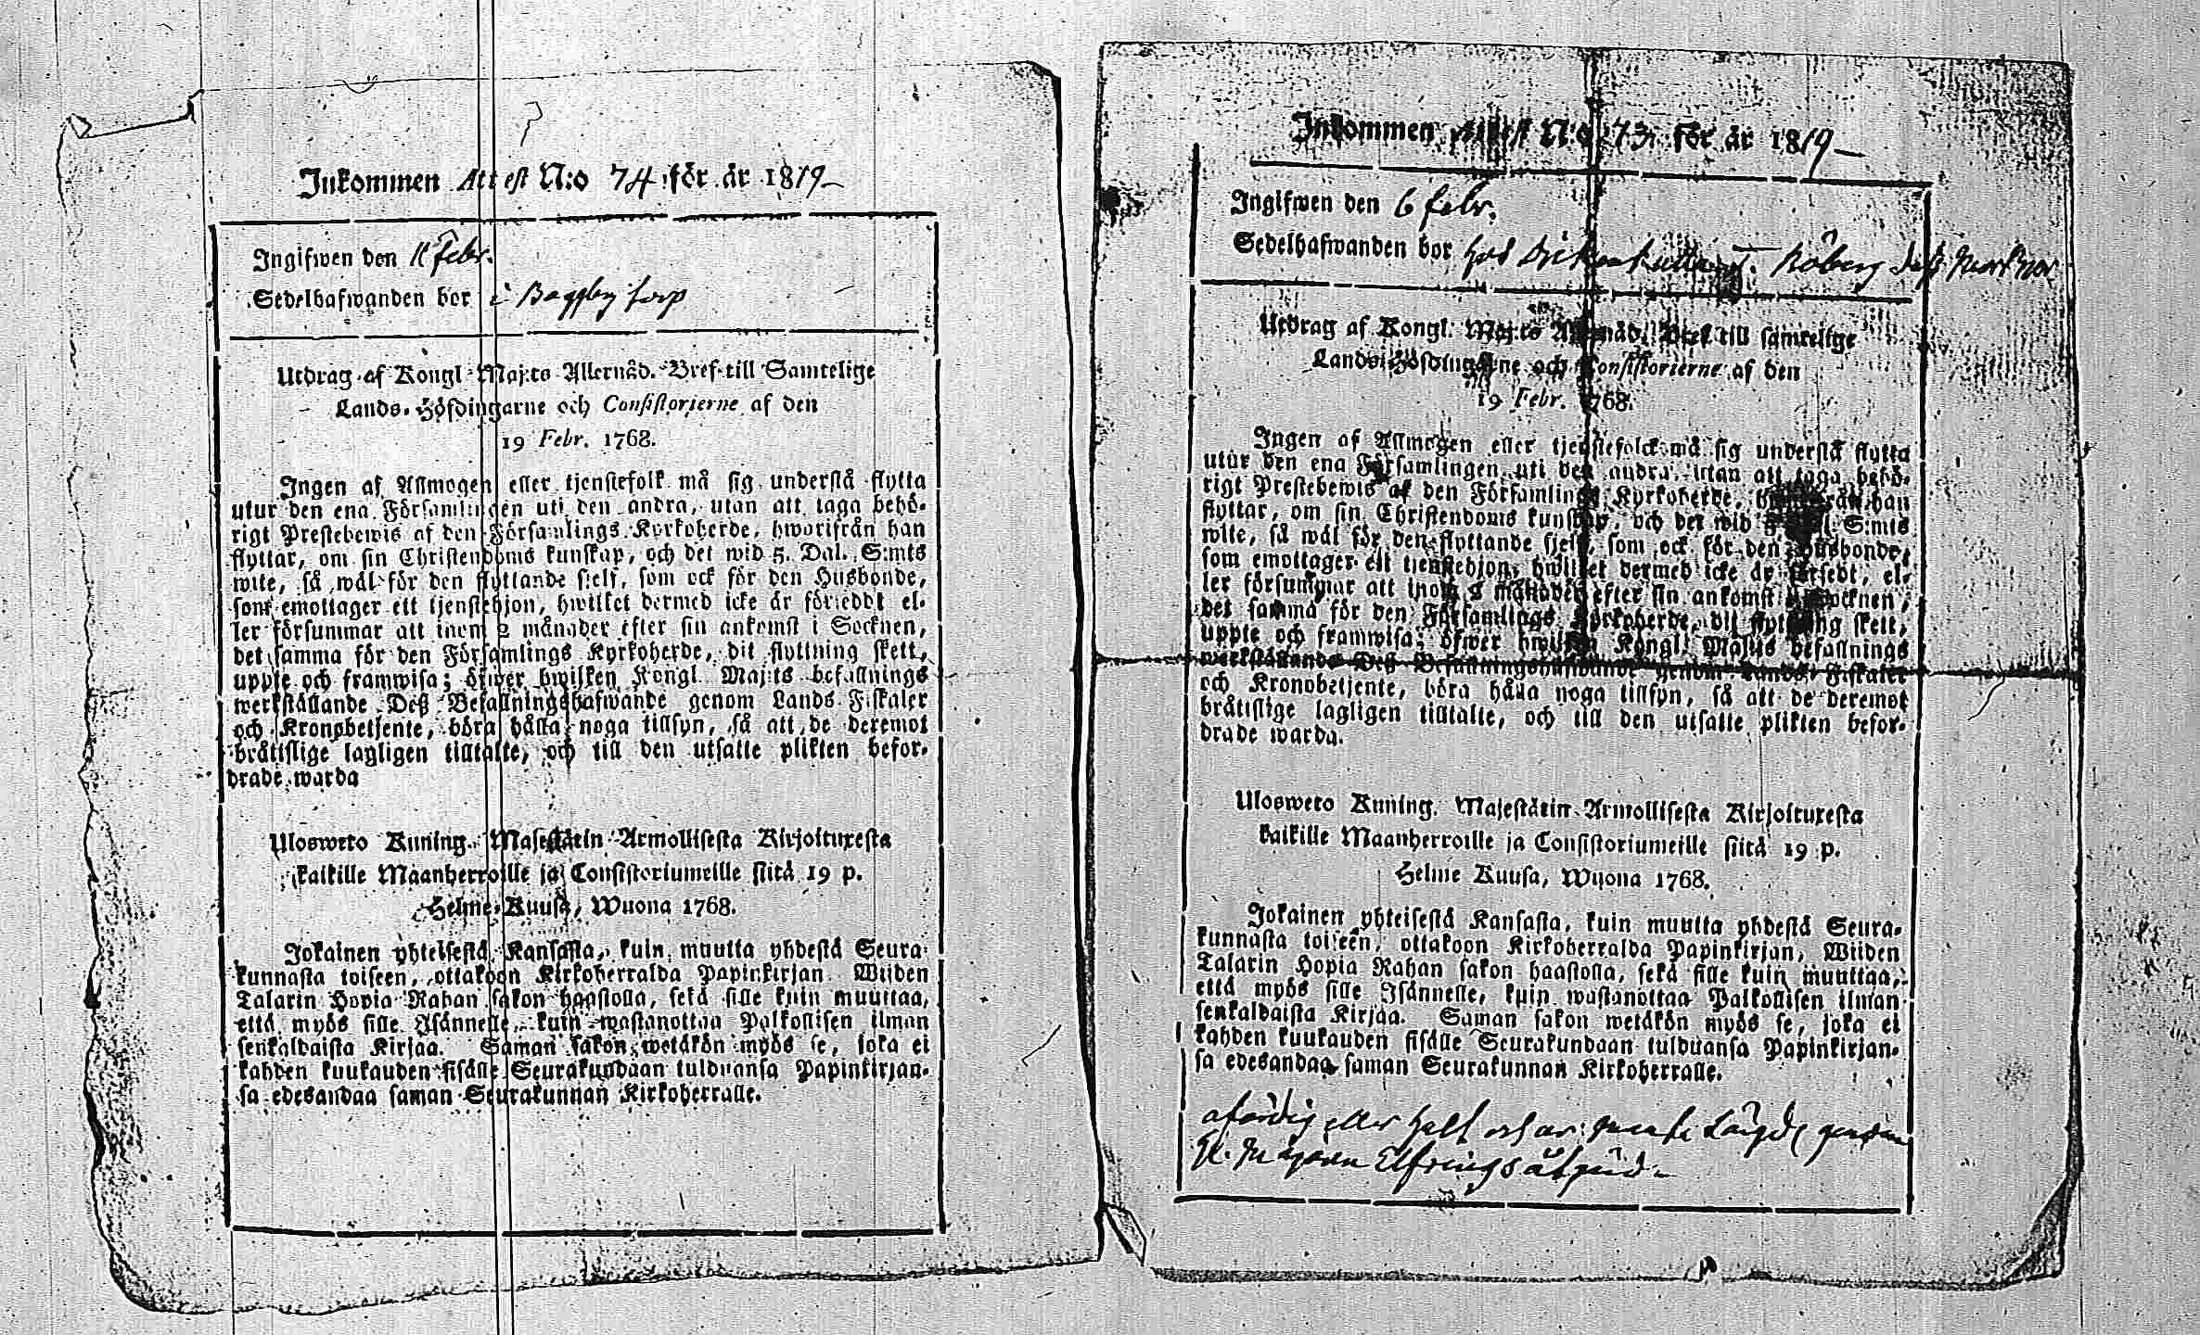 Inkommen Attest N:o 74 för år 1819
Ingifwen den 11 febr.
Sedelhafwanden bor i Baggby torp
Utdrag af Kongl Maj:ts Allernåd. Bref till Samtelige
Lands-Höfdingarne och Consistorierne af den
19 Febr. 1768.
Ingen af Allmogen eller tjenstefolk må sig understå flytta
utur den ena Församlingen uti den andra, utan att taga behö-
rigt Prestebewis af den Församlings Kyrkoherde, hworifrån han
flyttar, om sin Christendoms kunskap, och det wid 5. Dal. S:mts
wite, så wäl för den flyttande sjelf, som ock för den Husbonde,
som emottager ett tjenstehjon, hwilket dermed icke är försedt el-
ler försummar att inom 2 månader efter sin ankomst i Socknen,
det samma för den Församlings Kyrkoherde, dit flyttning skett,
uppte och framwisa; öfwer hwilken Kongl Maj:ts befallnings
werkställande Deß Befallningshafwande genom Lands Fiskaler
och Kronobetjente, böra hålla noga tillsyn, så att de deremot
bråtislige lagligen tilltalte, och till den utsatte plikten befor-
drade warda
Ulosweto Kuning. Majestätin Armollisesta Kirjoituxesta
kaikille Maanherroille ja Consistoriumeille siitä 19 p.
Helme-Kuusa, Wuona 1768.
Jokainen yhteisestä Kansasta, kuin muutta yhdestä Seura-
kunnasta toiseen, ottakoon Kirkoherralda Papinkirjan Wiiden
Talarin Hopia Rahan sakon haastolla, sekä sille kuin muuttaa,
että myös sille Isännelle, kuin wastanottaa Palkollisen ilman
senkaldaista Kirjaa. Saman sakon wetäkön myös se, joka ei
kahden kuukauden sisälle Seurakundaan tulduansa Papinkirjan-
sa edesandaa saman Seurakunnan Kirkoherralle.
Inkommen Attest N:o 73 för år 1819
Ingifwen den 6 febr.
Sedelhafwanden bor hos Röberg
Utdrag af Kongl. Maj:ts Allernåd. Bref till samtelige
Lands-Höfdingarne och Consistorierne af den
19 Febr. 1768.
Ingen af Allmogen eller tjenstefolck må sig understå flytta
utur den ena Församlingen uti den andra, utan att taga behö-
rigt Prestebewis af den Församlings Kyrkoherde, hworifrån han
flyttar, om sin Christendoms kunskap, och det wid S:mts
wite, så wäl för den flyttande sjelf, som ock för den Husbonde,
som emottager ett tjenstehjon, hwilket dermed icke är försedt, el-
ler försummar att inom 2 månader efter sin ankomst i Socknen,
det samma för den Församlings Kyrkoherde, dit flyttning skett,
uppte och framwisa; öfwer hwilken Kongl. Maj:ts befallnings
werkställande Deß Befallningshafwande genom Lands Fiskaler
och Kronobetjente, böra hålla noga tillsyn, så att de deremot
bråtislige lagligen tilltalte, och till den utsatte plikten befor-
drade warda.
Ulosweto Kuning. Majestätin Armollisesta Kirjoituxesta
kaikille Maanherroille ja Consistoriumeille siitä 19 p.
Helme Kuusa, Wuona 1768.
Jokainen yhteisestä Kansasta, kuin muutta yhdestä Seura-
kunnasta toiseen, ottakoon Kirkoherralda Papinkirjan, Wiiden
Talarin Hopia Rahan sakon haastolla, sekä sille kuin muuttaa,
että myös sille Isännelle, kuin wastanottaa Palkollisen ilman
senkaldaista Kirjaa. Saman sakon wetäkön myös se, joka ei
kahden kuukauden sisälle Seurakundaan tulduansa Papinkirjan-
sa edesandaa saman Seurakunnan Kirkoherralle.
eller